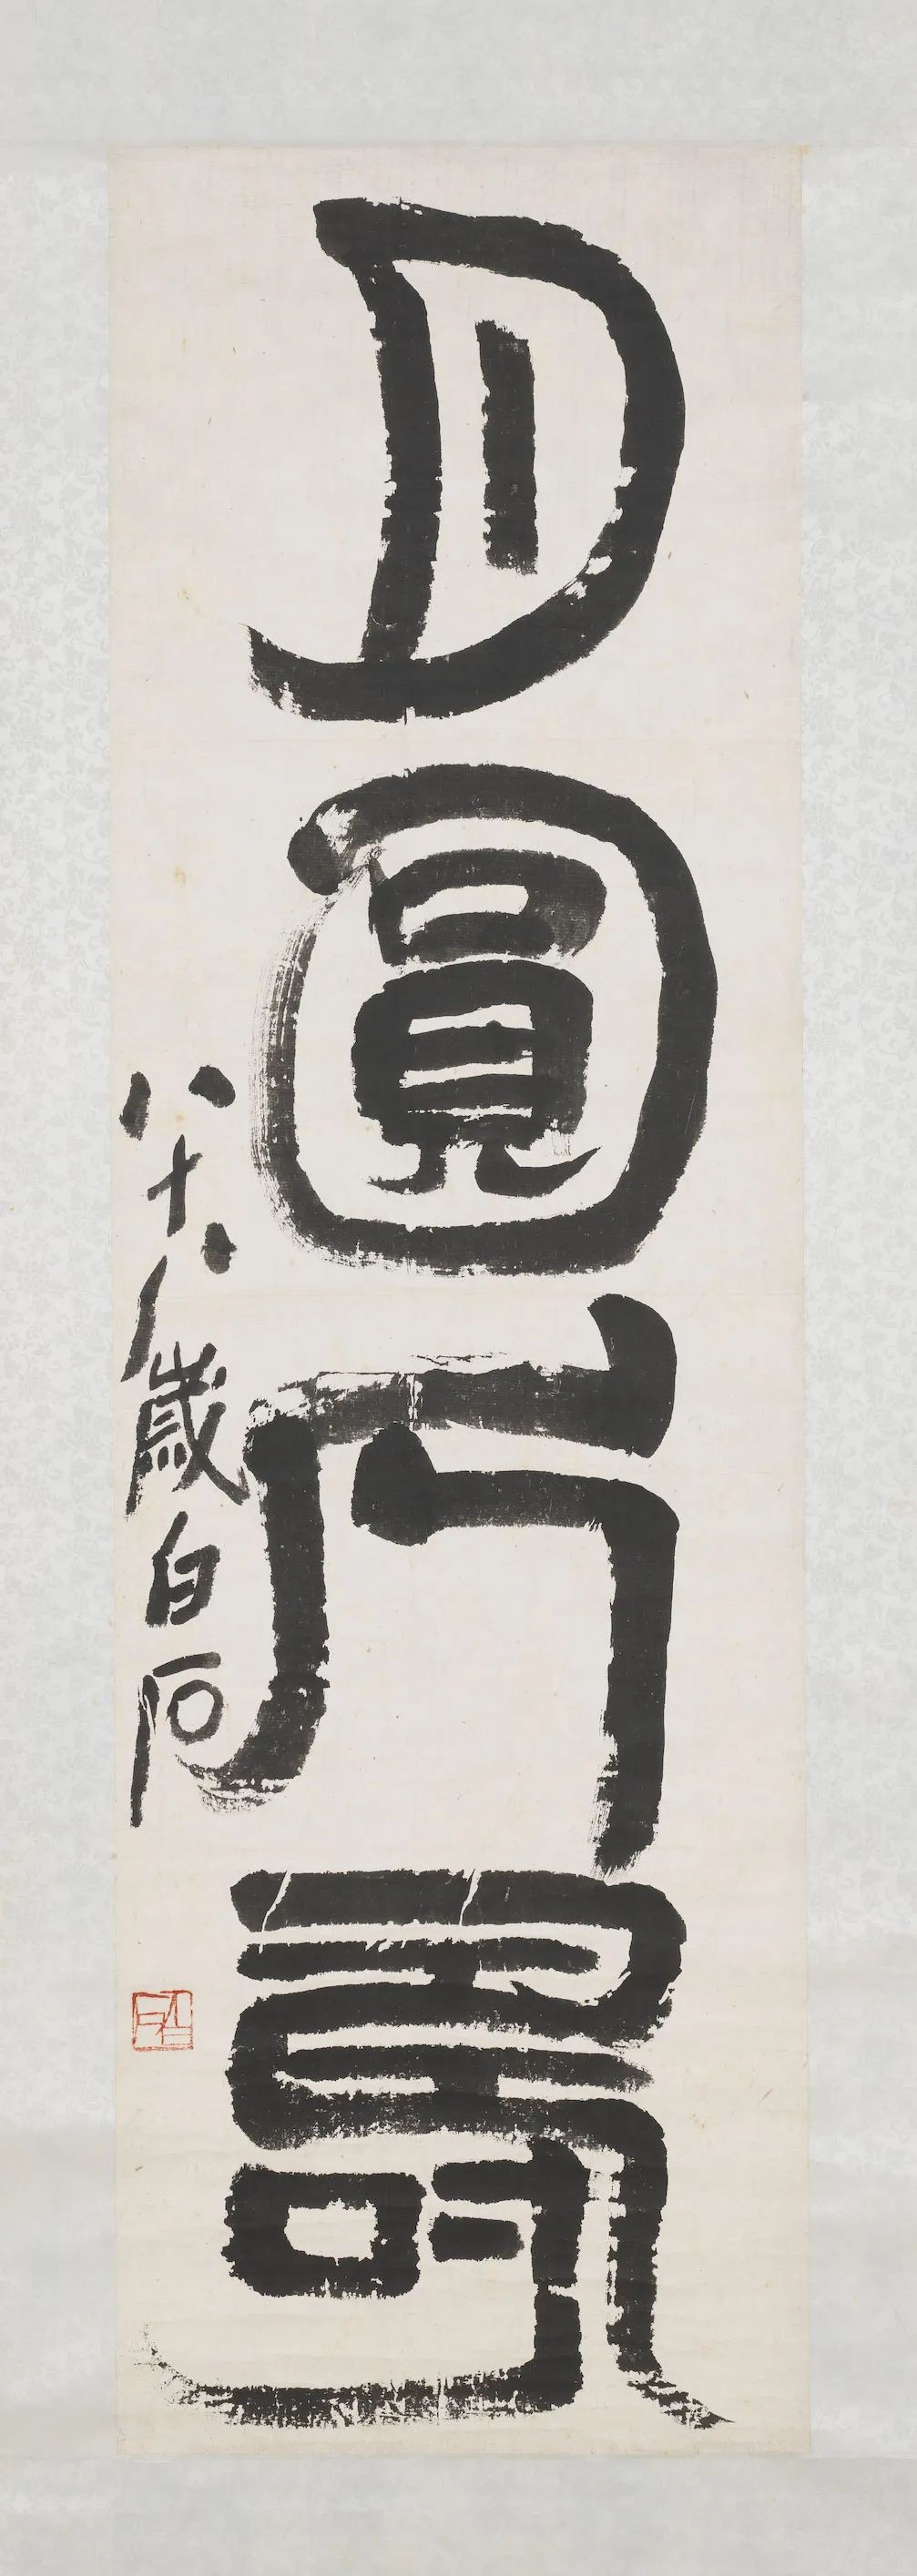 月圓人壽
八十八歲白石